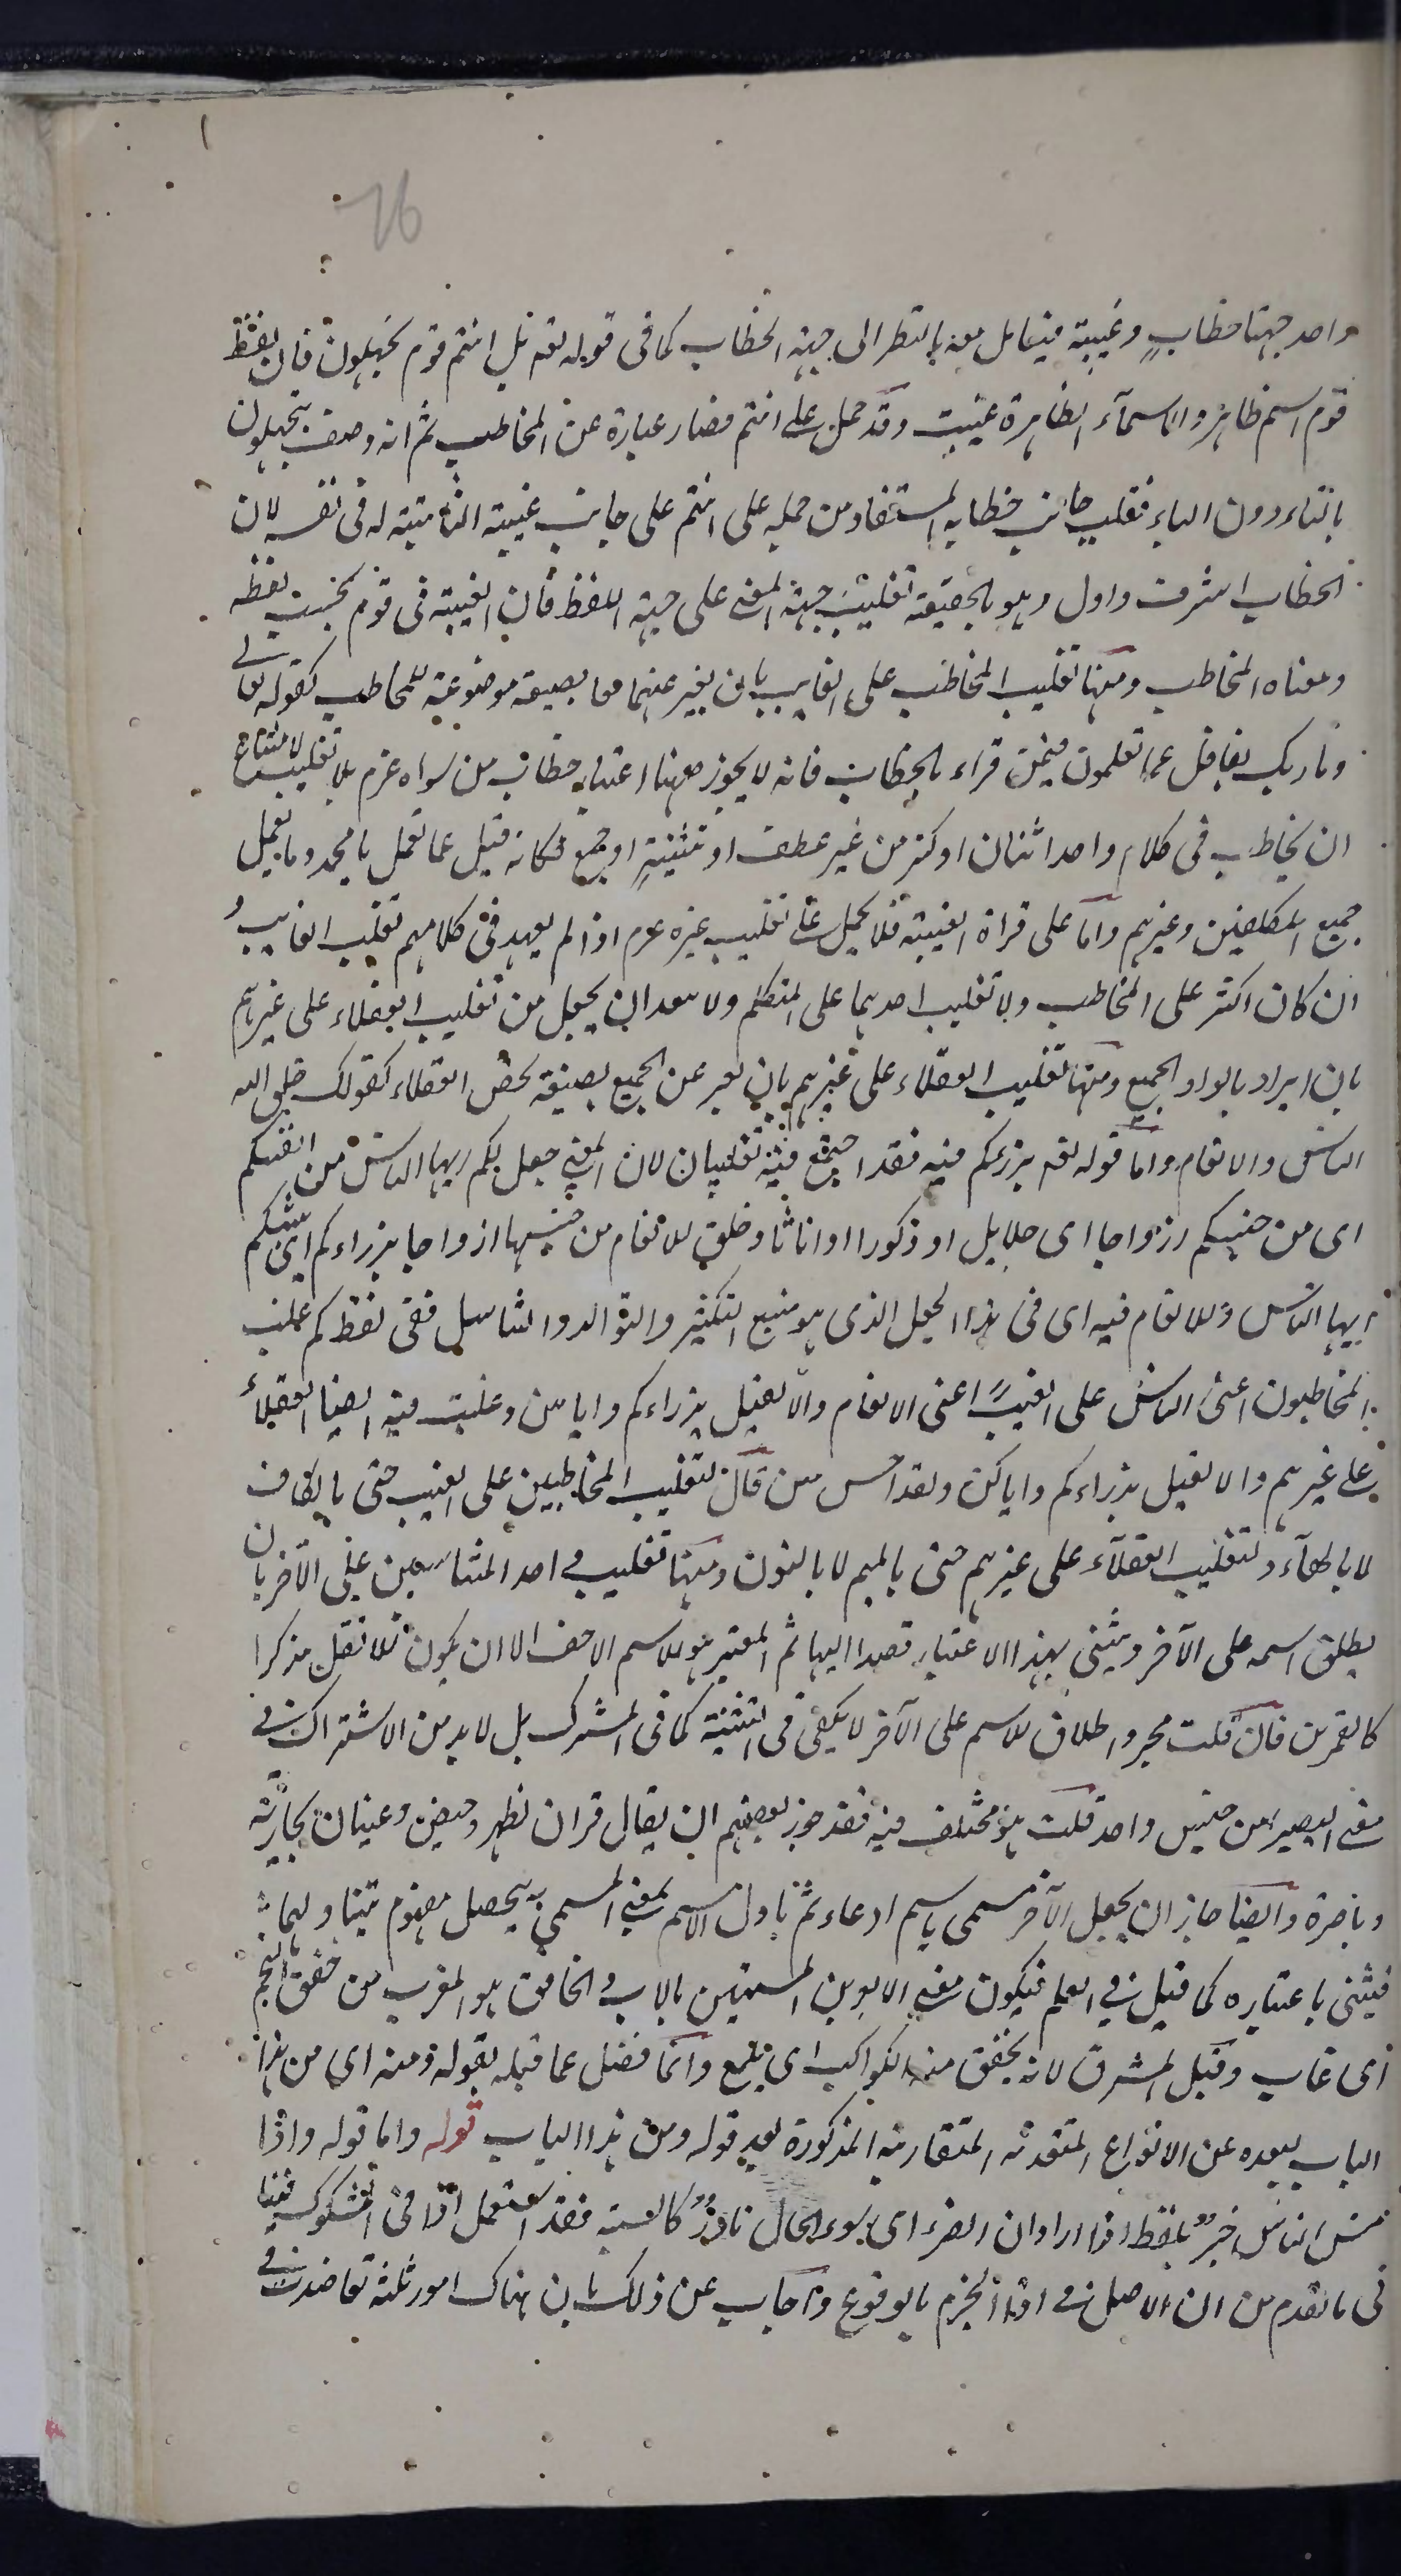 76
واحد جهتا خطاب وغيبة فيعامل معه بالنظر الى جهة الخطاب كما فى قوله تعـ بل انتم قوم تجهلون فان لفظ
قوم اسم ظاهر والاسماء الظاهرة غيب وقد حمل على انتم فصار عبارة عن المخاطب ثم انه وصف بتجهلون
بالتاء دون الياء فغلب جانب خطابه المستفاد من حمله على انتم على جانب غيبته الثابتة له فى نفسه لان
الخطاب اشرف وادل وهو بالحقيقة تغليب جهة المعنى على جهة اللفظ فان الغيبة فى قوم بحسب لفظه
ومعناه المخاطب ومنها تغليب المخاطب على الغايب بان يعبر عنهما معا بصيغة موضوعة للمخاطب كقوله تعالى
وما ربك بغافل عما تعملون فيمن قراء بالخطاب فانه لا يجوز ههنا اعتبار خطاب من سواه عزم بلا تغليب لامتناع
ان يخاطب فى كلام واحد اثنان او كثر من غير عطف او تثنية او جمع فكانه قيل عما تعمل يا محمد وما يعمل
جميع المكلفين وغيرهم واما على قراة الغيبة فلا يحمل على تغليب غيره عزم اذ لم يعهد فى كلامهم تغليب الغايب
ان كان اكثر على المخاطب ولا تغليب احدهما على المتكلم ولا يبعد ان يجعل من تغليب العقلاء على غيرهم
بان ايراد بالواو الجمع ومنها تغليب العقلاء على غيرهم بان يعبر عن الجميع بصيغة تخص العقلاء كقولك خلق الله
الناس والانعام واما قوله تعـ يذرءكم فيه فقد اجتمع فيه تغليبان لان المعنى جعل لكم ايها الناس من انفسكم
اى من جنسكم ازواجا اى حلايل او ذكورا او اناثا وخلق للانعام من جنسها ازواجا يذراءكم اى يبثكم
ايها الناس وللانعام فيه اى فى هذا الجعل الذى هو منبع التكثير والتوالد والتناسل ففى لفظ كم غلب
المخاطبون اعنى الناس على الغيب اعنى الانعام والا لقيل يذراءكم واياهن وغلب فيه ايضا العقلاء
على غيرهم والا لقيل يذراءكم واياكن ولقد احسن من قال تغليب المخاطبين على الغيب حتى بالكاف
لا بالهاء وتغليب العقلاء على غيرهم حتى بالميم لا بالنون ومنها تغليب احد المتناسبين على الآخر بان
يطلق اسمه على الآخر ويثنى بهذا الاعتبار قصدا اليها ثم المعتبر هو الاسم الاخف الا ان يكون الاثقل مذكرا
كالقمرين فان قلت مجرد اطلاق الاسم على الآخر لا يكفى فى التثنية كما فى المشترك بل لا بد من الاشتراك فى
معنى ليصيرا من جنس واحد قلت هو مختلف فيه فقد جوز بعضهم ان يقال قران لطهر وحيض وعينان لجارية
وباصرة وايضا جاز ان يجعل الآخر مسمى باسم ادعاء ثم ياول الاسم بمعنى المسمى به ليحصل مفهوم يتناولهما
فيثنى باعتباره كما قيل فى العلم فيكون معنى الابوين المسميين بالاب والخافق هو المغرب من خفق النجم
اى غاب وقيل المشرق لانه يخفق منه الكواكب اى يلمع وانما فصل عما قبله بقوله ومنه اى من هذا
الباب لبعده عن الانواع المتقدمة المتقاربة المذكورة بعد قوله ومن هذا الباب قوله واما قوله واذا
مس الناس ضر بلفظ اذا اراد ان الضر اى سوء الحال نادر كالسيئة فقد استعمل اذا فى المشكوك فينا
فى ما تقدم من ان الاصل فى اذا الجزم بالوقوع واجاب عن ذلك بان هناك امور ثلثة تعاضدت فى